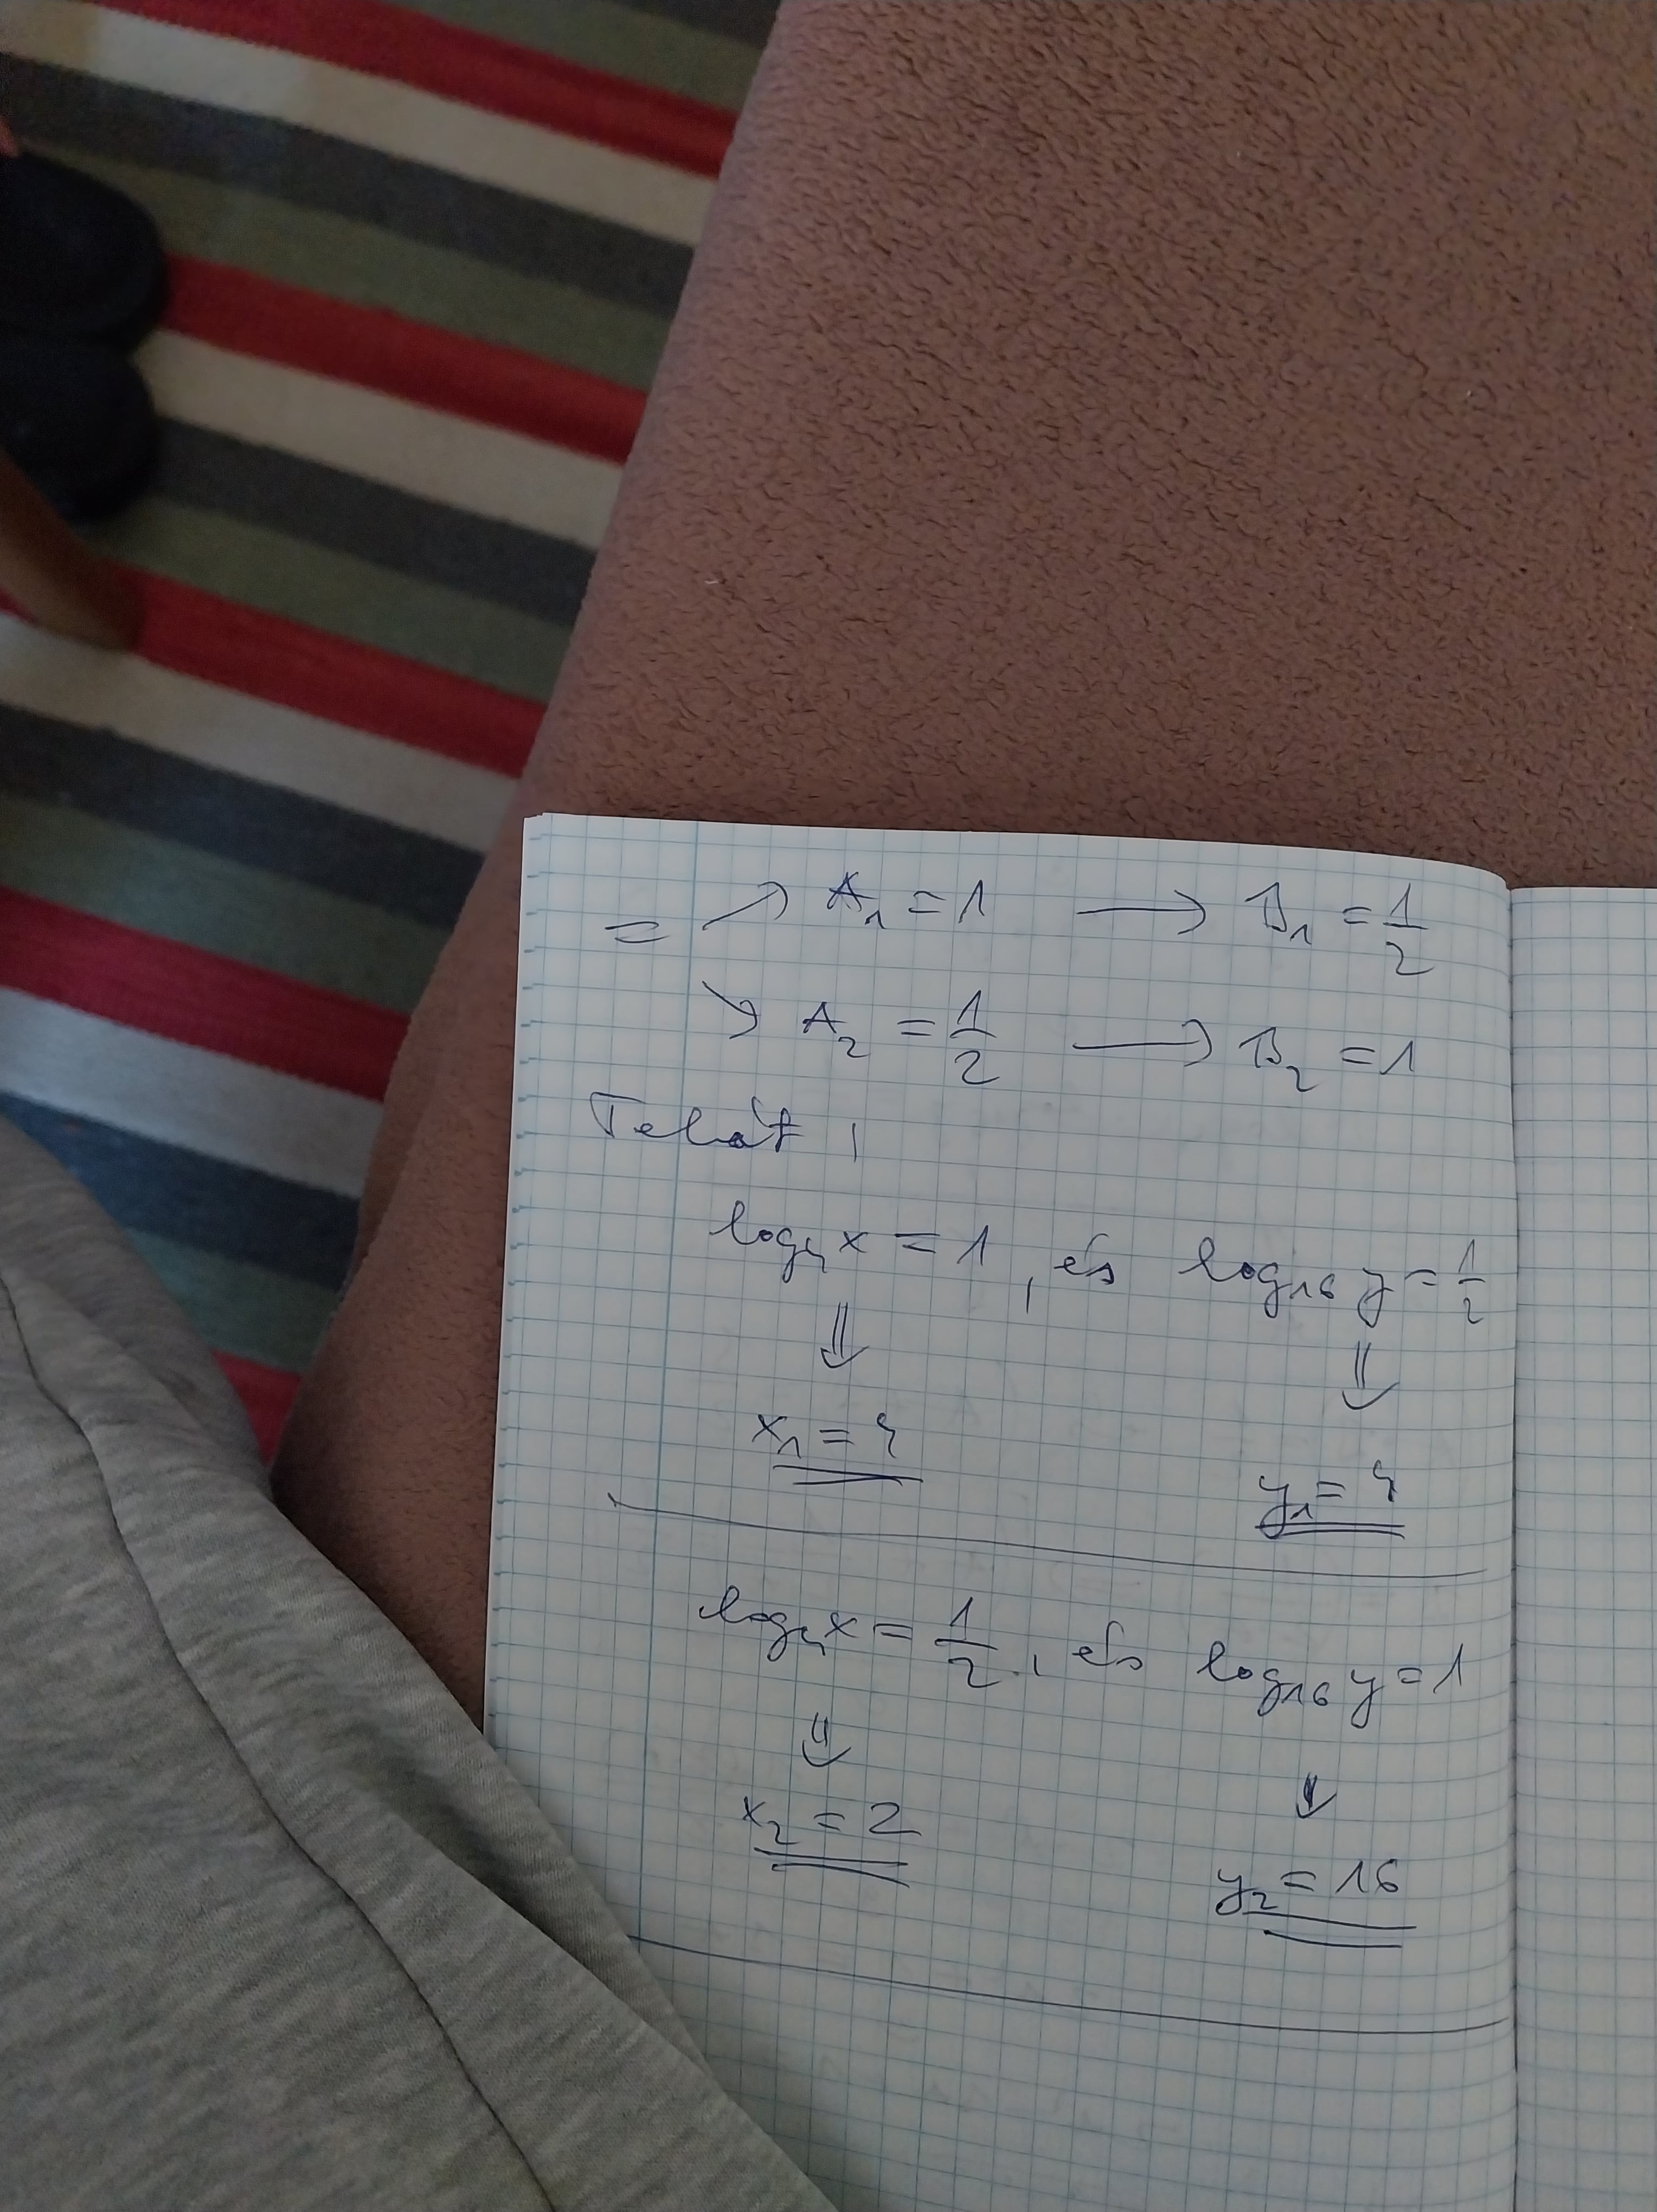 = ↗ A₁ = 1 ⟶ B₁ = 1/2
↘ A₂ = 1/2 ⟶ B₂ = 1
Tehát,
log₄ x = 1, és log₁₆ y = 1/2
⇓ ⇓
x₁ = 4
y₁ = 4
log₄ x = 1/2, és log₁₆ y = 1
⇓ ↓
x₂ = 2
y₂ = 16